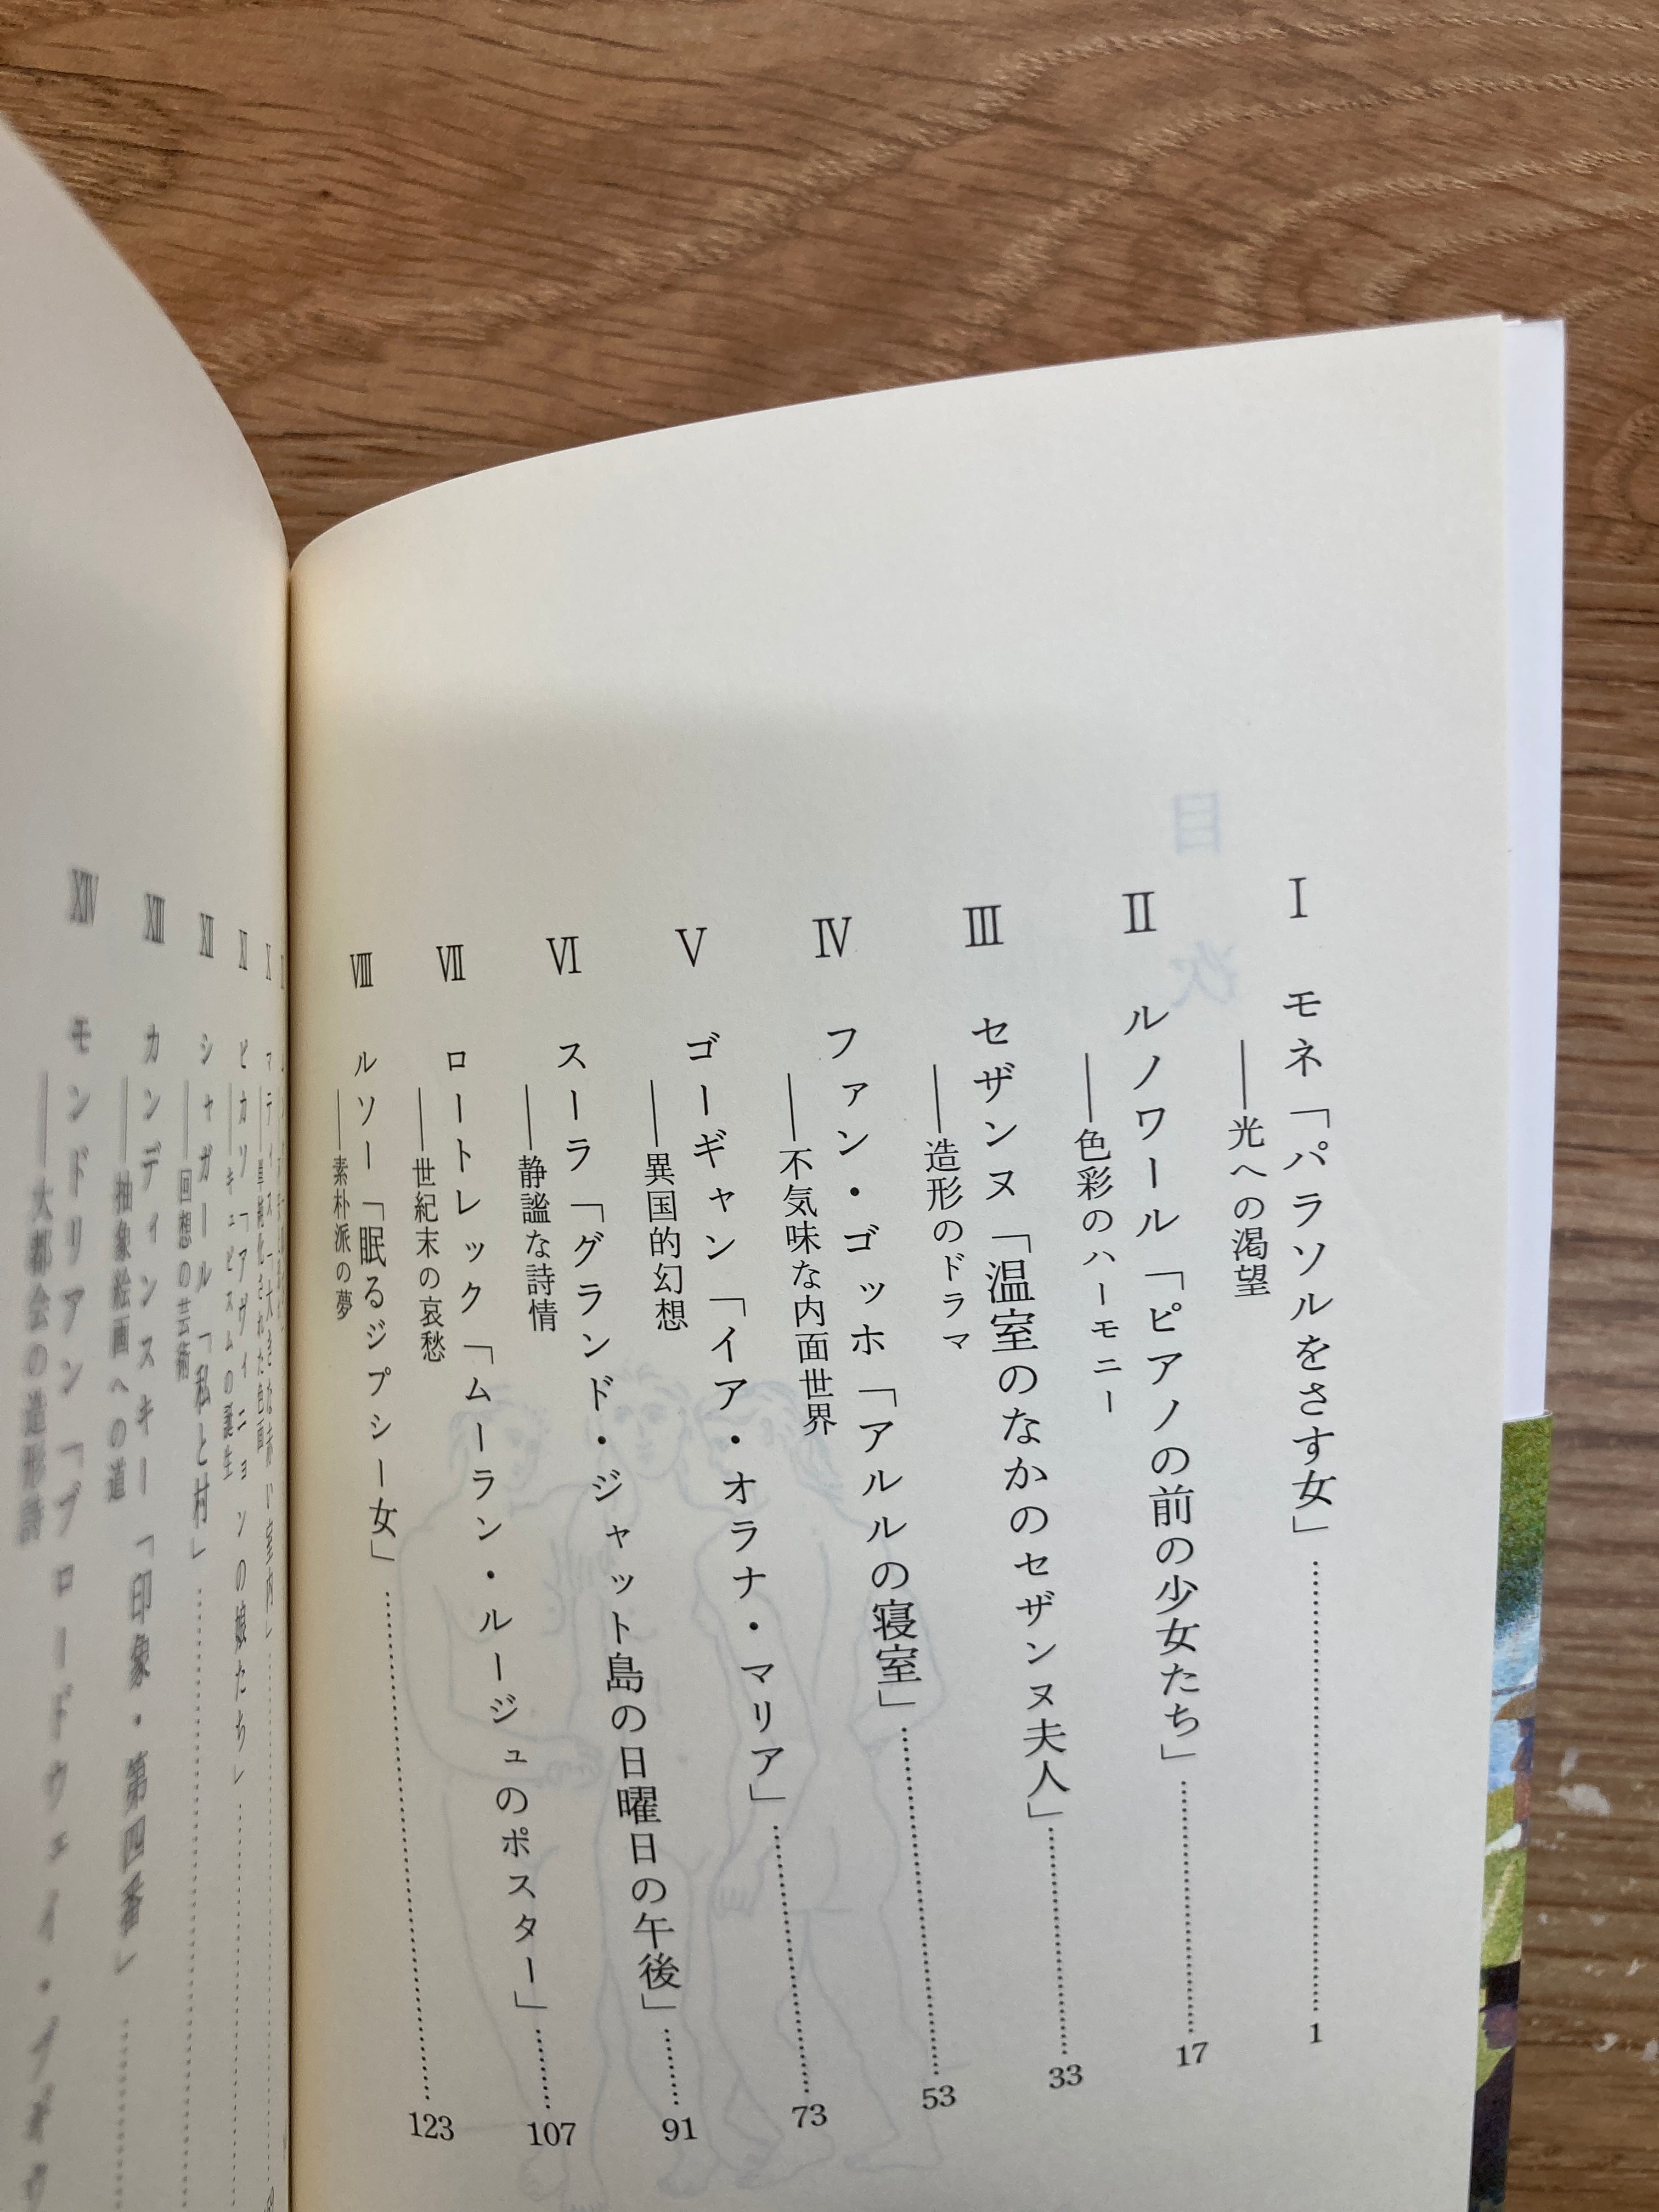 目次
Ⅰ モネ「パラソルをさす女」……1
――光への渇望
Ⅱ ルノワール「ピアノの前の少女たち」……17
――色彩のハーモニー
Ⅲ セザンヌ「温室のなかのセザンヌ夫人」……33
――造形のドラマ
Ⅳ ファン・ゴッホ「アルルの寝室」……53
――不気味な内面世界
Ⅴ ゴーギャン「イア・オラナ・マリア」……73
――異国的幻想
Ⅵ スーラ「グランド・ジャット島の日曜日の午後」……91
――静謐な詩情
Ⅶ ロートレック「ムーラン・ルージュのポスター」……107
――世紀末の哀愁
Ⅷ ルソー「眠るジプシー女」……123
――素朴派の夢
Ⅹ マティス「大きな赤い室内」
――単純化された色面
Ⅺ ピカソ「アヴィニョンの娘たち」
――キュビスムの誕生
Ⅻ シャガール「私と村」
――回想の芸術
XIII カンディンスキー「印象・第四番」
――抽象絵画への道
XIV モンドリアン「ブロードウェイ・ブギウ
――大都会の造形詩